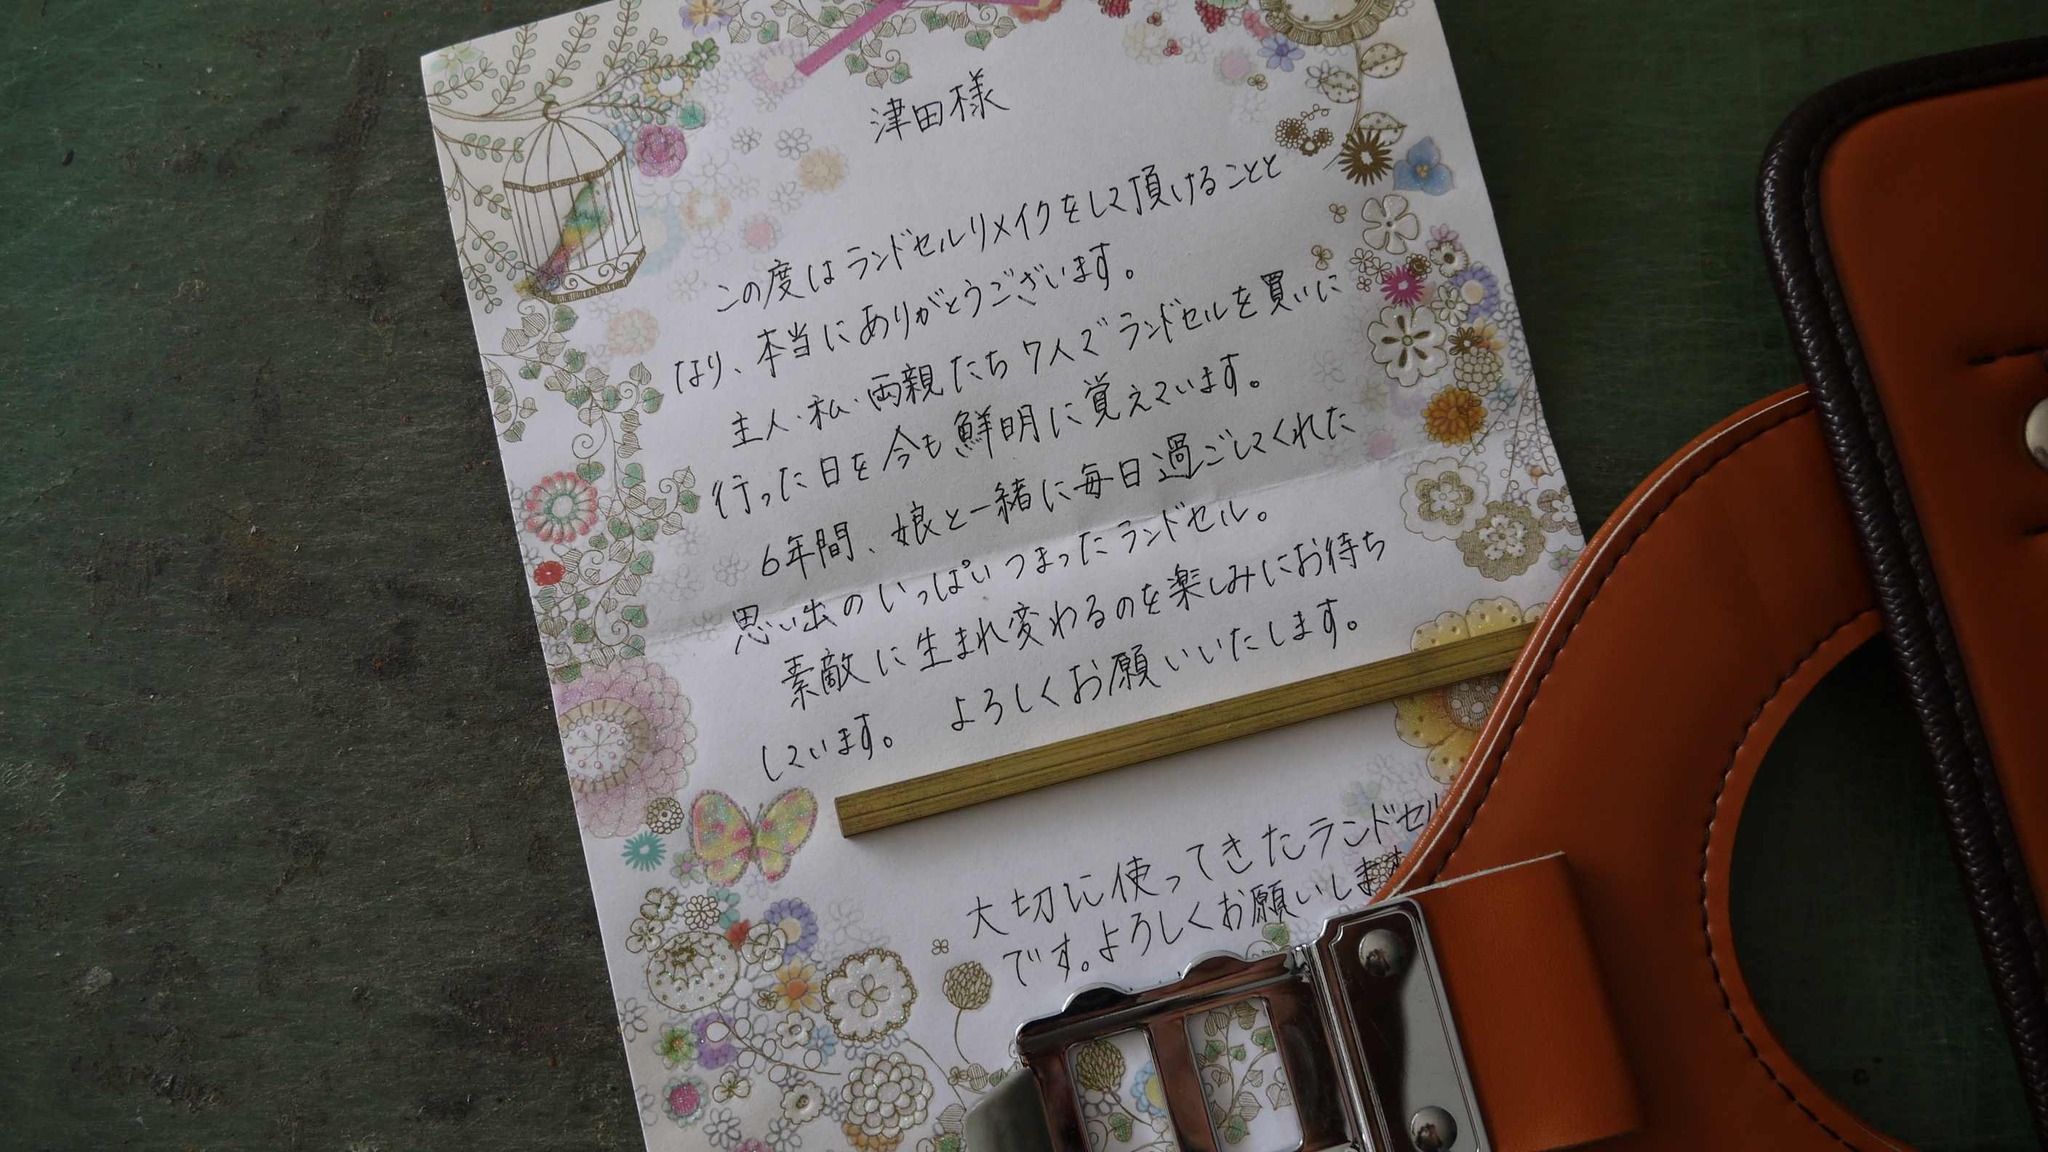 津田様
この度はランドセルリメイクをして頂けることと
なり、本当にありがとうございます。
主人・私・両親たち7人でランドセルを買いに
行った日を今も鮮明に覚えています。
6年間、娘と一緒に毎日過ごしてくれた
思い出のいっぱいつまったランドセル。
素敵に生まれ変わるのを楽しみにお待ち
しています。 よろしくお願いいたします。
大切に使ってきたランドセル
です。よろしくお願いします